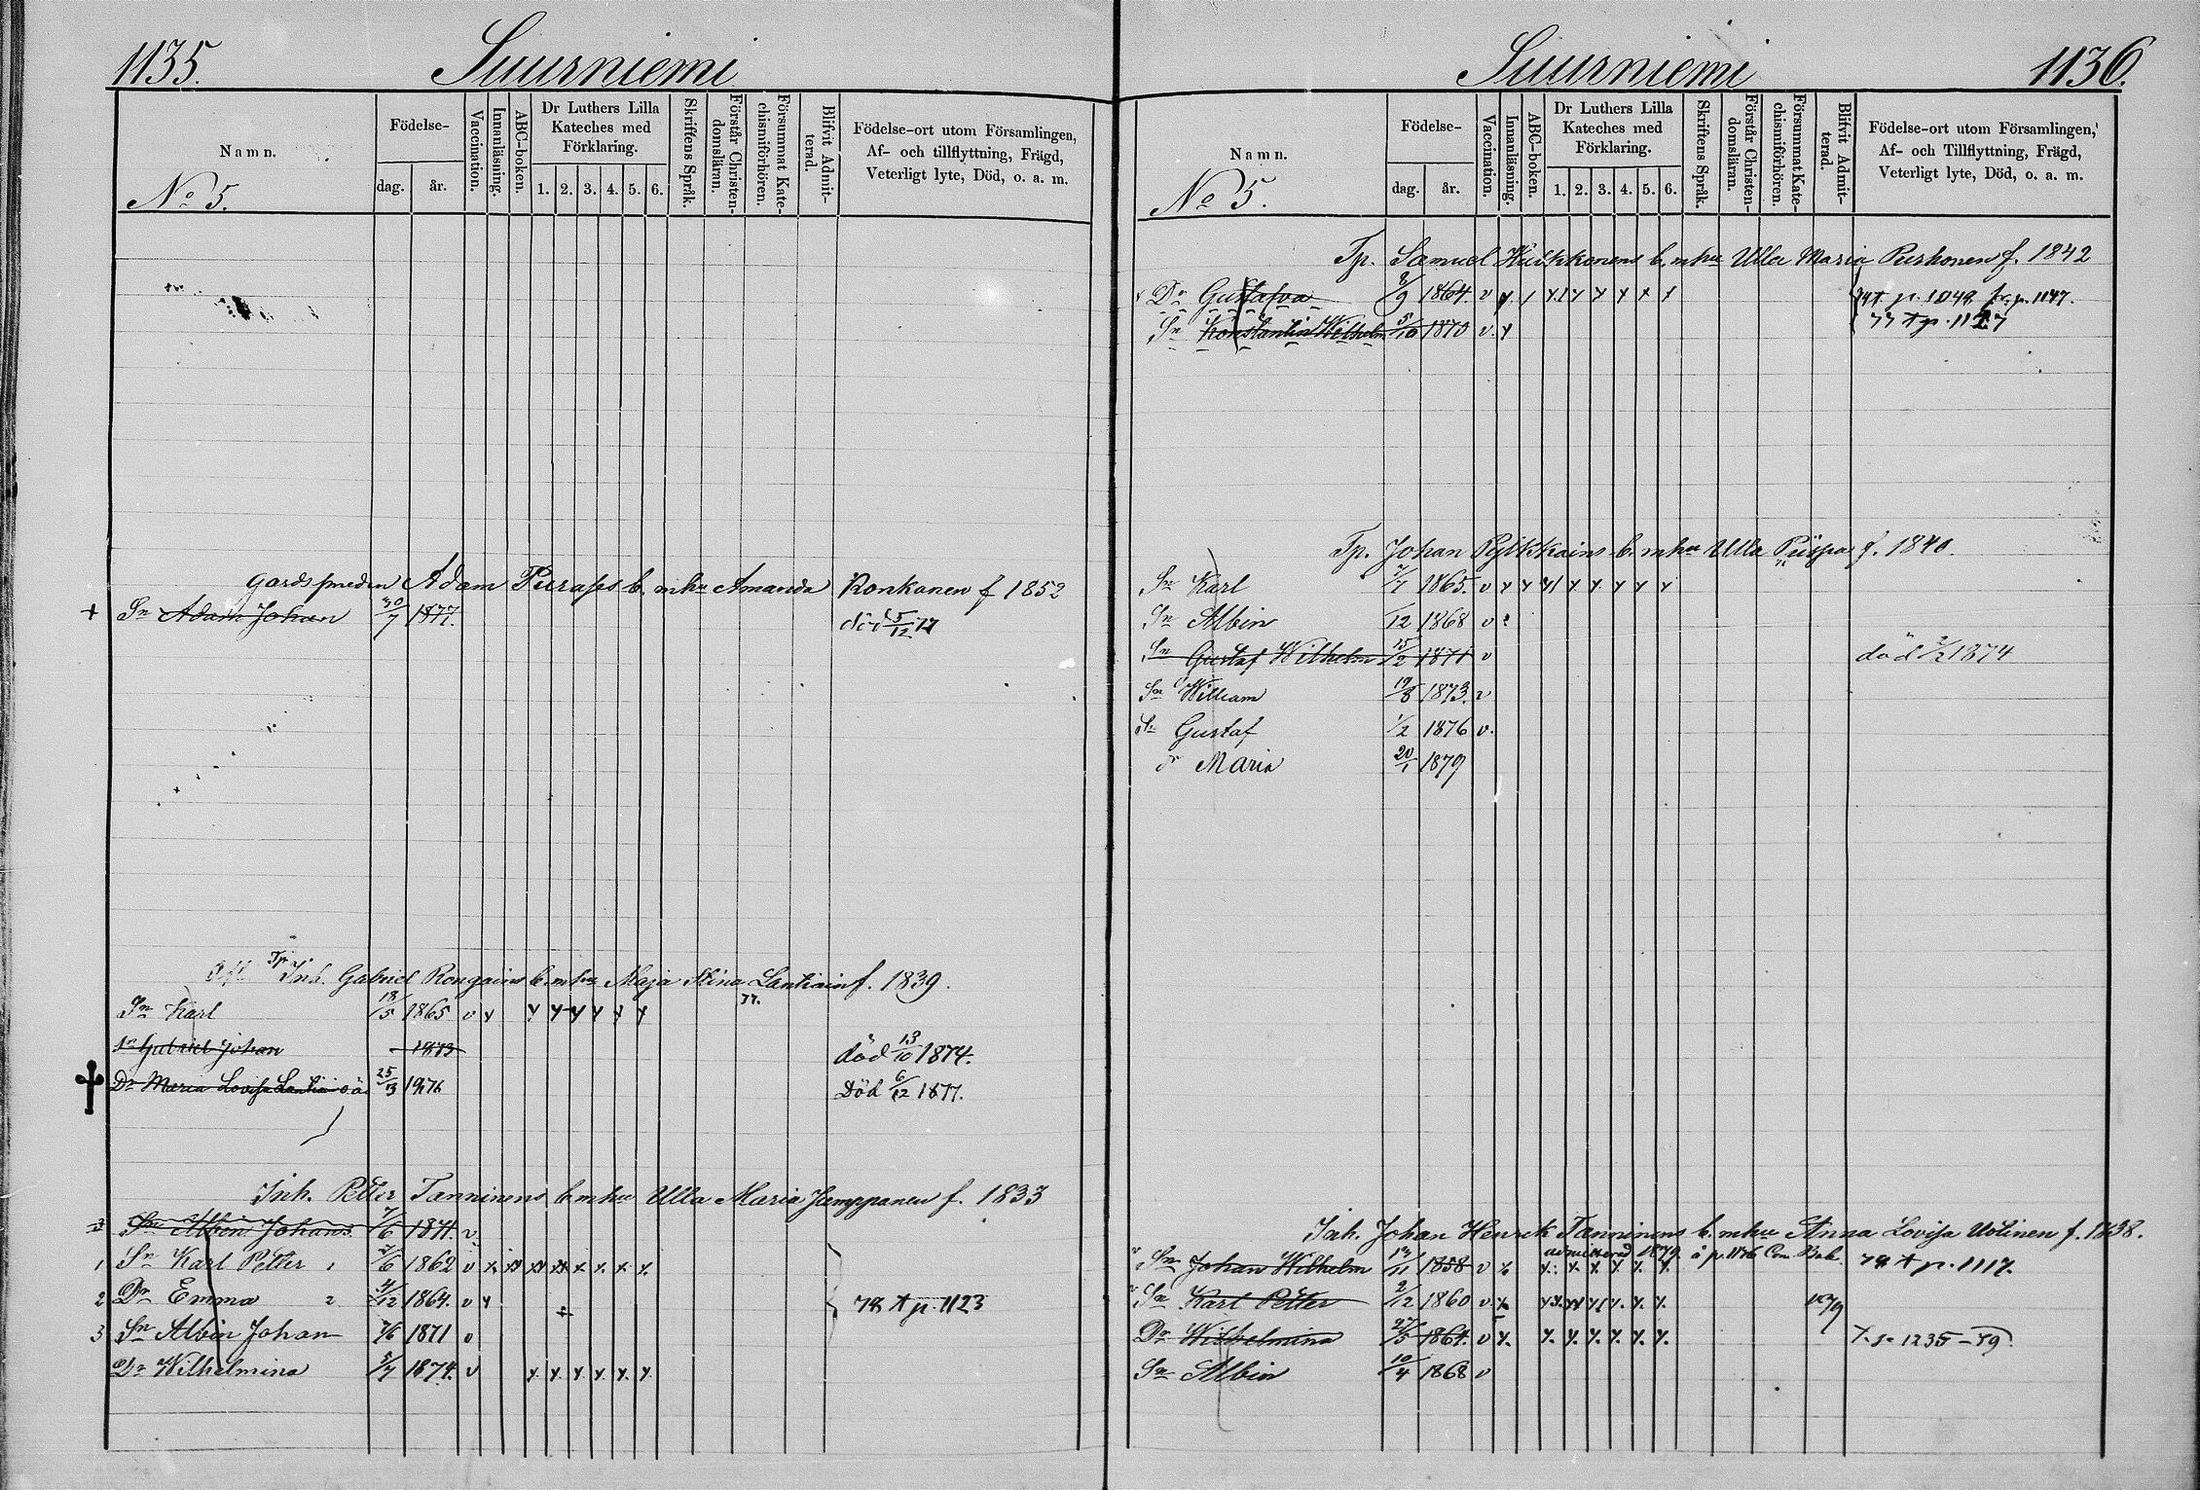 1135.
Suurniemi
Namn.
No 5.
Födelse-
dag.
år.
Vaccination.
Innanläsning.
ABC-boken.
Dr Luthers Lilla
Kateches med
Förklaring.
1. 2. 3. 4. 5. 6.
Skriftens Språk.
Förstår Christen-
domsläran.
Försummat Kate-
chismiförhören.
Blifvit Admit-
terad.
Födelse-ort utom Församlingen,
Af- och tillflyttning, Frägd,
Veterligt lyte, Död, o. a. m.
Adam b. m. hu Amanda Ronkanen f 1852
+ Sn Adam Johan 30/7 1877. död 5/12 77
Tp.
Inh. Gabriel Rongains b. m. hu Maja Stina Lantiain f. 1839.
Sn Karl 18/5 1865 v y y y y y y y
Sn Gabriel Johan 1873 död 13/10 1874.
Dr Maria Lovisa 25/3 1876 Död 6/12 1877.
Inh. Petter Tanninens b. m hu Ulla Maria Jamppanen f. 1833
Sn Albin Johans 7/6 1871. v.
1 Sn Karl Petter 1862 v
2 Dr Emma 2 4/12 1864. v y 78 p. 1123
3 Sn Albin Johan 7/6 1871 v
Dr Wilhelmina 5/7 1874. v y. y. y. y. y. y.
Suurniemi
1136.
Namn.
No 5.
Födelse-
dag.
år.
Vaccination.
Innanläsning.
ABC-boken.
Dr Luthers Lilla
Kateches med
Förklaring.
1. 2. 3. 4. 5. 6.
Skriftens Språk.
Förstår Christen-
domsläran.
Försummat Kate-
chismiförhören.
Blifvit Admit-
terad.
Födelse-ort utom Församlingen,
Af- och Tillflyttning, Frägd,
Veterligt lyte, Död, o. a. m.
Tp. Samuel b. m hu Ulla Maria Purhonen f. 1842
Dr Gustafva 1864. v y p. 1147.
Sn Konstantin Wilhelm 5/10 1870 v. y
Tp. Johan b. m hu Ulla f. 1840.
Sn Karl 7/7 1865. v y y y y y y y y
Sn Albin 12 1868 v
Sn Gustaf Wilhelm 15/2 1871 v död 2/2 1874
Sn William 1873. v
Sn Gustaf 1/2 1876 v.
dr Maria 20/1 1879
Inh. Johan Henrik Tanninens b. m hu Anna Lovisa Uotinen f. 1838.
admitterad 1879
Sn Johan Wilhelm 1858 v 78 p. 1117.
Sn Karl Petter 2/12 1860 v 1879
Dr Wilhelmina 27/5 1864. v y. y. y. y. y. y. y. 1235-79.
Sn Albin 10/4 1868 v